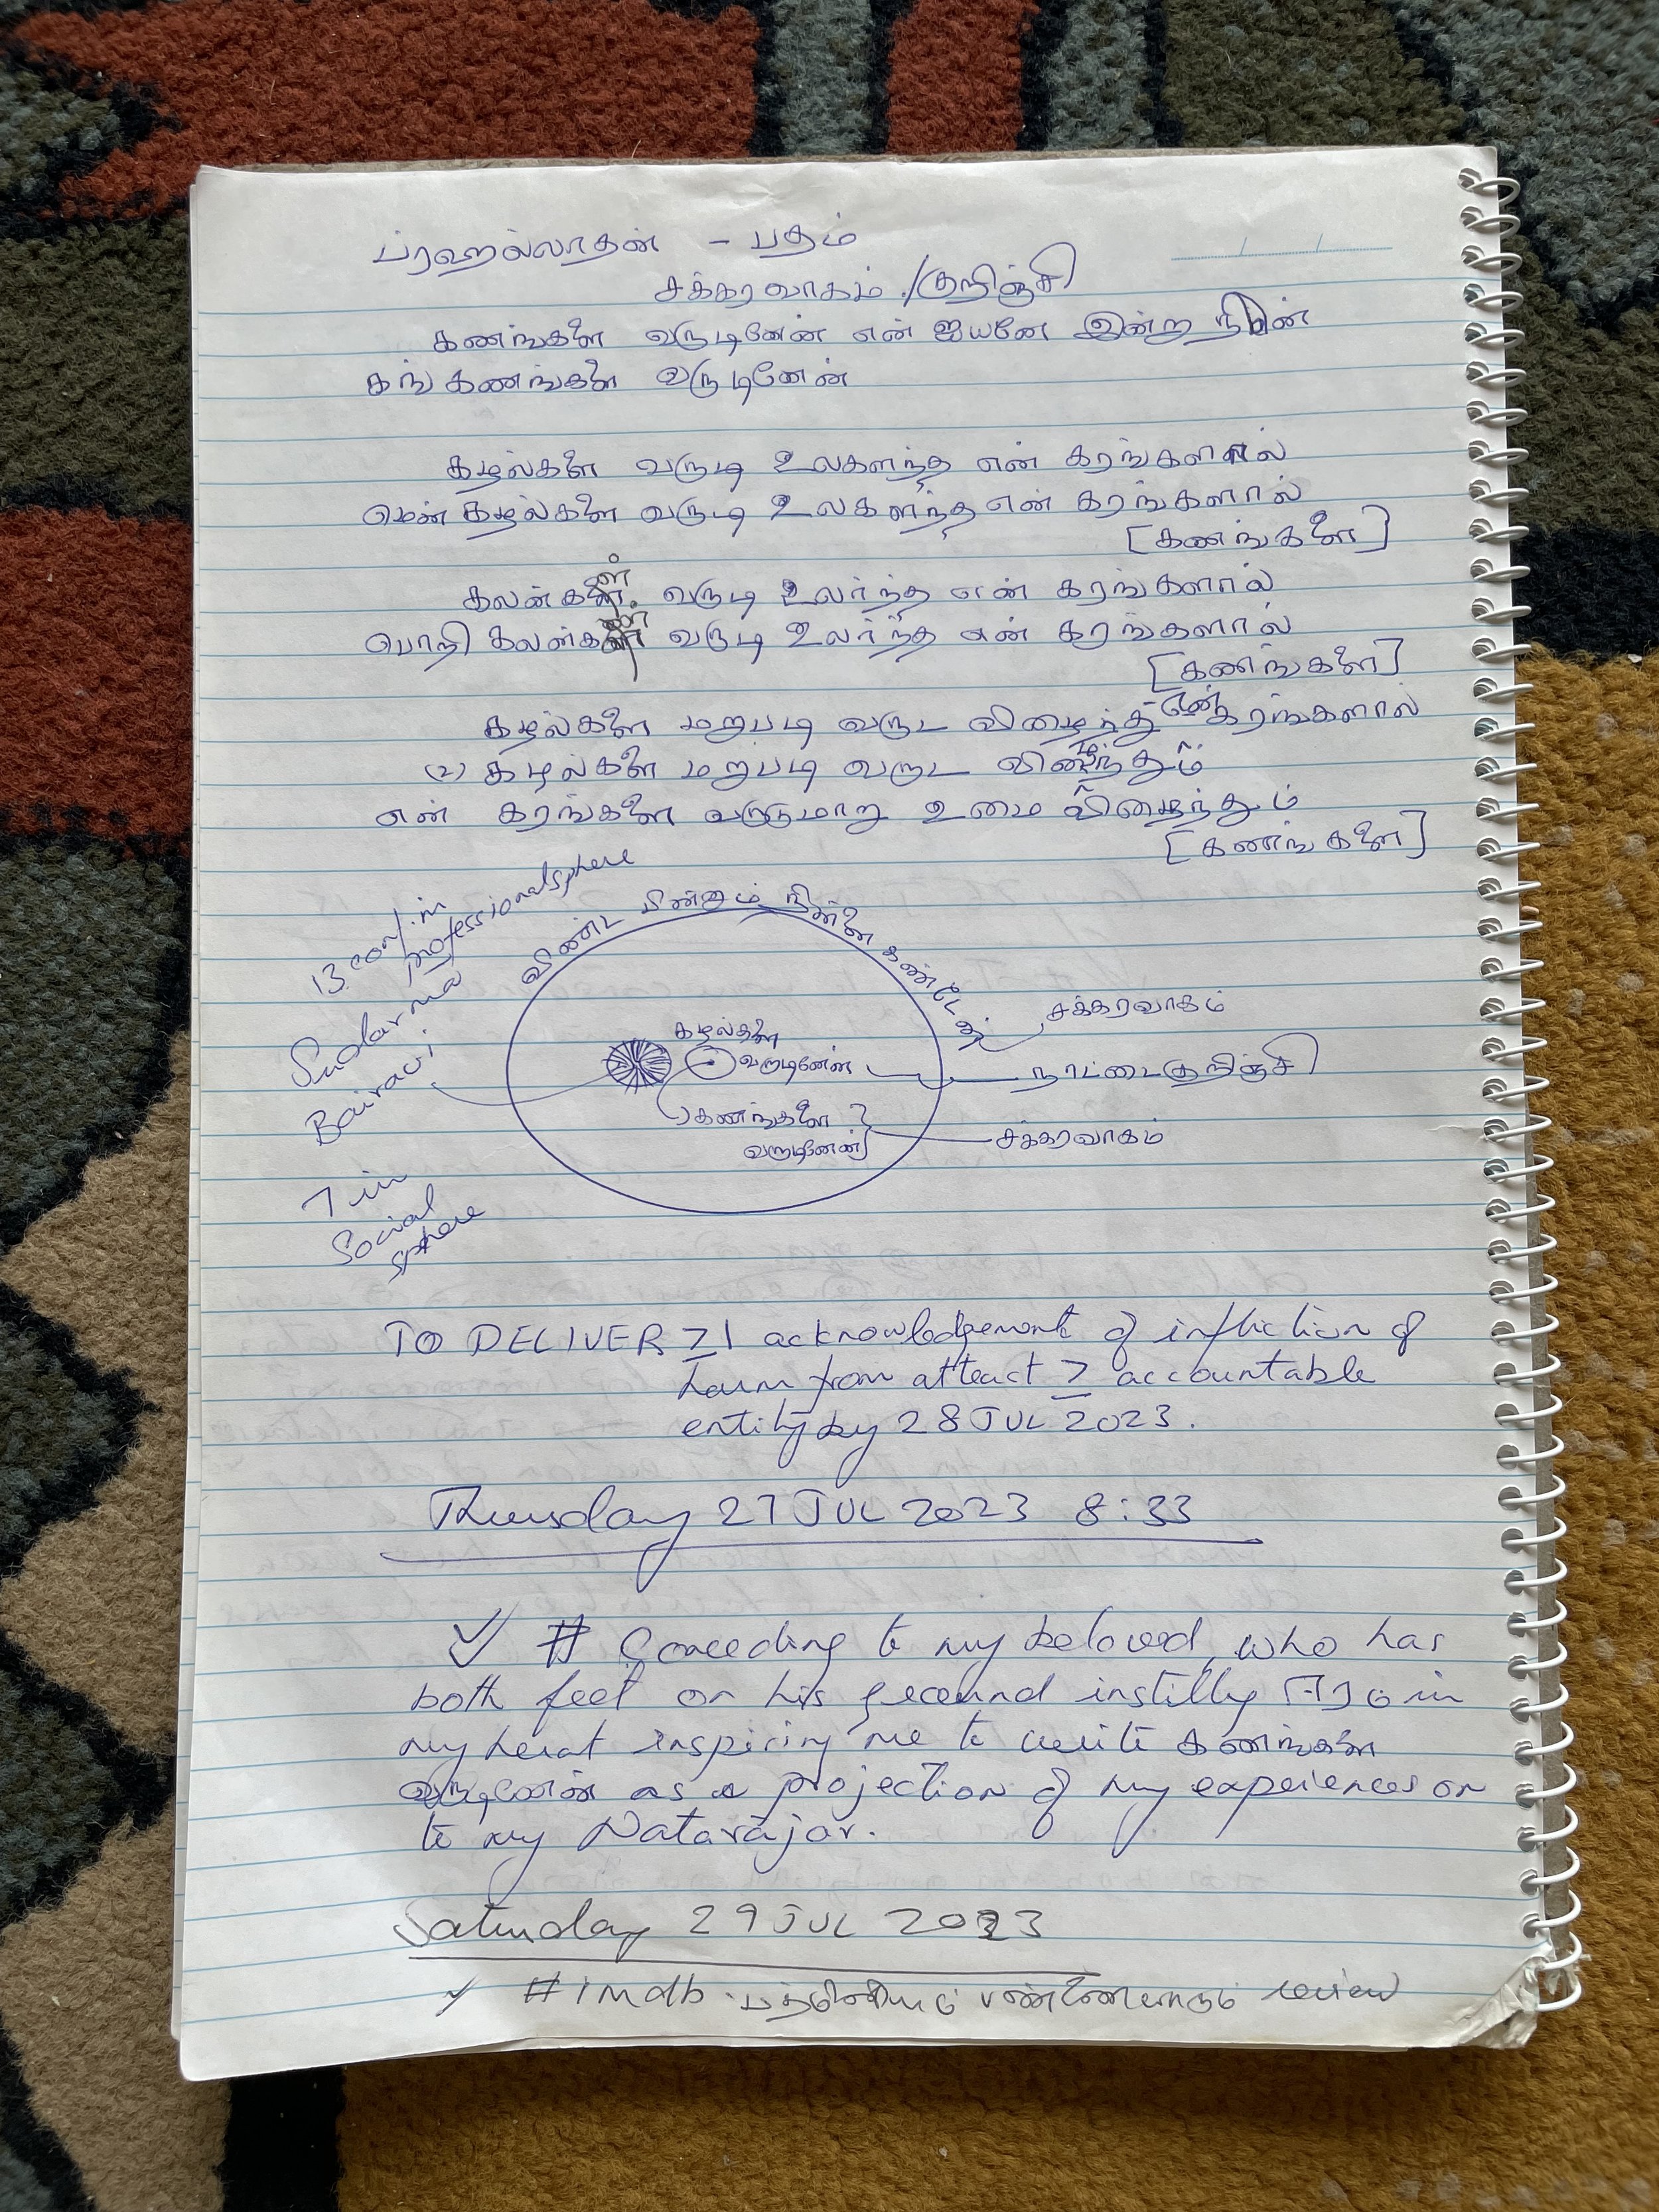 ப்ரஹல்லாதன் - பதம்
சக்கரவாகம் / குறிஞ்சி
கணங்களை வருடினேன் என் ஐயனே இன்று நின்
கங்கணங்களை வருடினேன்
கழல்களை வருடி உலகளந்த என் கரங்களால்
மென் கழல்களை வருடி உலகளந்த என் கரங்களால்
[கணங்களை]
கலன்கள் வருடி உலர்ந்த என் கரங்களால்
பொறி கலன்கள் வருடி உலர்ந்த என் கரங்களால்
[கணங்களை]
கழல்களை மறுபடி வருட விழைந்த என் கரங்களால்
(2) கழல்களை மறுபடி வருட விழைந்தும்
என் கரங்களை வருடுமாறு உமை விழைந்தும்
[கணங்களை]
13 conf. in
professional sphere
Bairavi
7 in
Social
sphere
விண்ட பின்னும் நின்னை கண்டேன்
கழல்களை
வருடினேன்
கணங்களை
வருடினேன்
சக்கரவாகம்
நாட்டைகுறிஞ்சி
சக்கரவாகம்
TO DELIVER ≥1 acknowledgement of infliction of
harm from atleast ≥ accountable
entity by 28 JUL 2023.
Thursday 27 JUL 2023 8:33
# Conceding to my beloved, who has
both feet on his ground in
my heart inspiring me to write கணங்களை
வருடினேன் as a projection of my experiences on
to my Natarajar.
Saturday 29 JUL 2023
✓ #imdb review